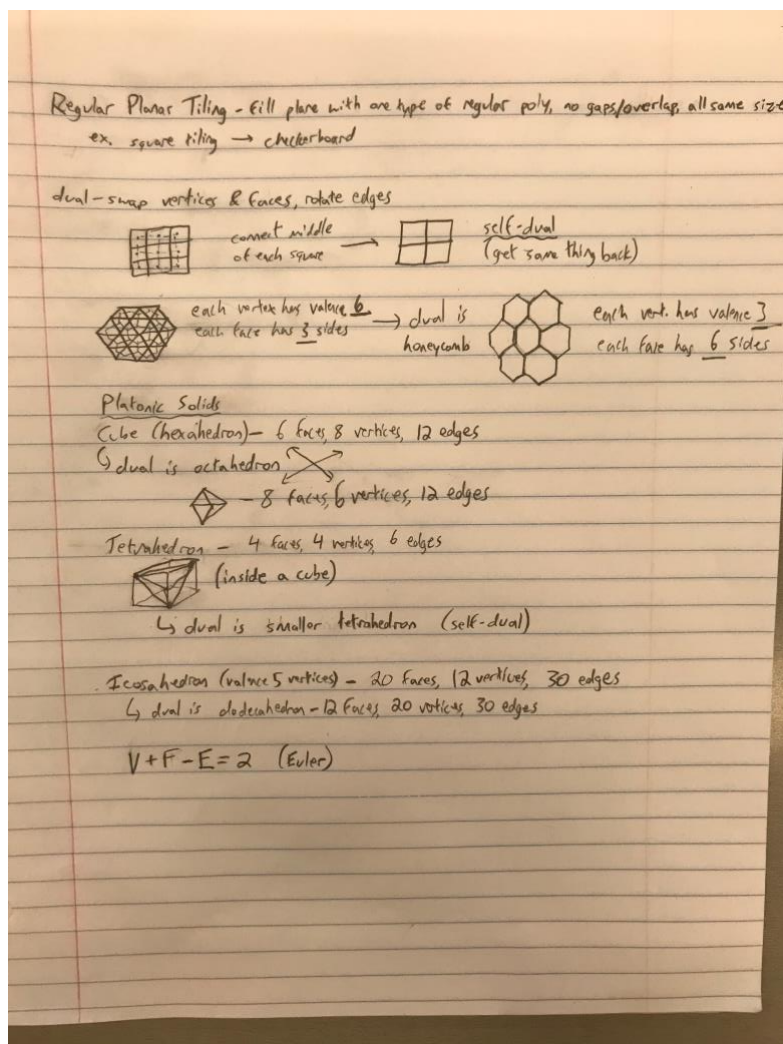 Regular Planar Tiling - fill plane with one type of regular poly, no gaps/overlap, all same size
ex. square tiling → checkerboard
dual - swap vertices & faces, rotate edges
connect middle of each square → self-dual (get same thing back)
each vertex has valence 6
each face has 3 sides → dual is honeycomb
each vert. has valence 3
each face has 6 sides
Platonic Solids
Cube (hexahedron) - 6 faces, 8 vertices, 12 edges
↳ dual is octahedron
- 8 faces, 6 vertices, 12 edges
Tetrahedron - 4 faces, 4 vertices, 6 edges
(inside a cube)
↳ dual is smaller tetrahedron (self-dual)
Icosahedron (valnce 5 vertices) - 20 faces, 12 vertices, 30 edges
↳ dual is dodecahedron - 12 faces, 20 vertices, 30 edges
V + F - E = 2 (Euler)